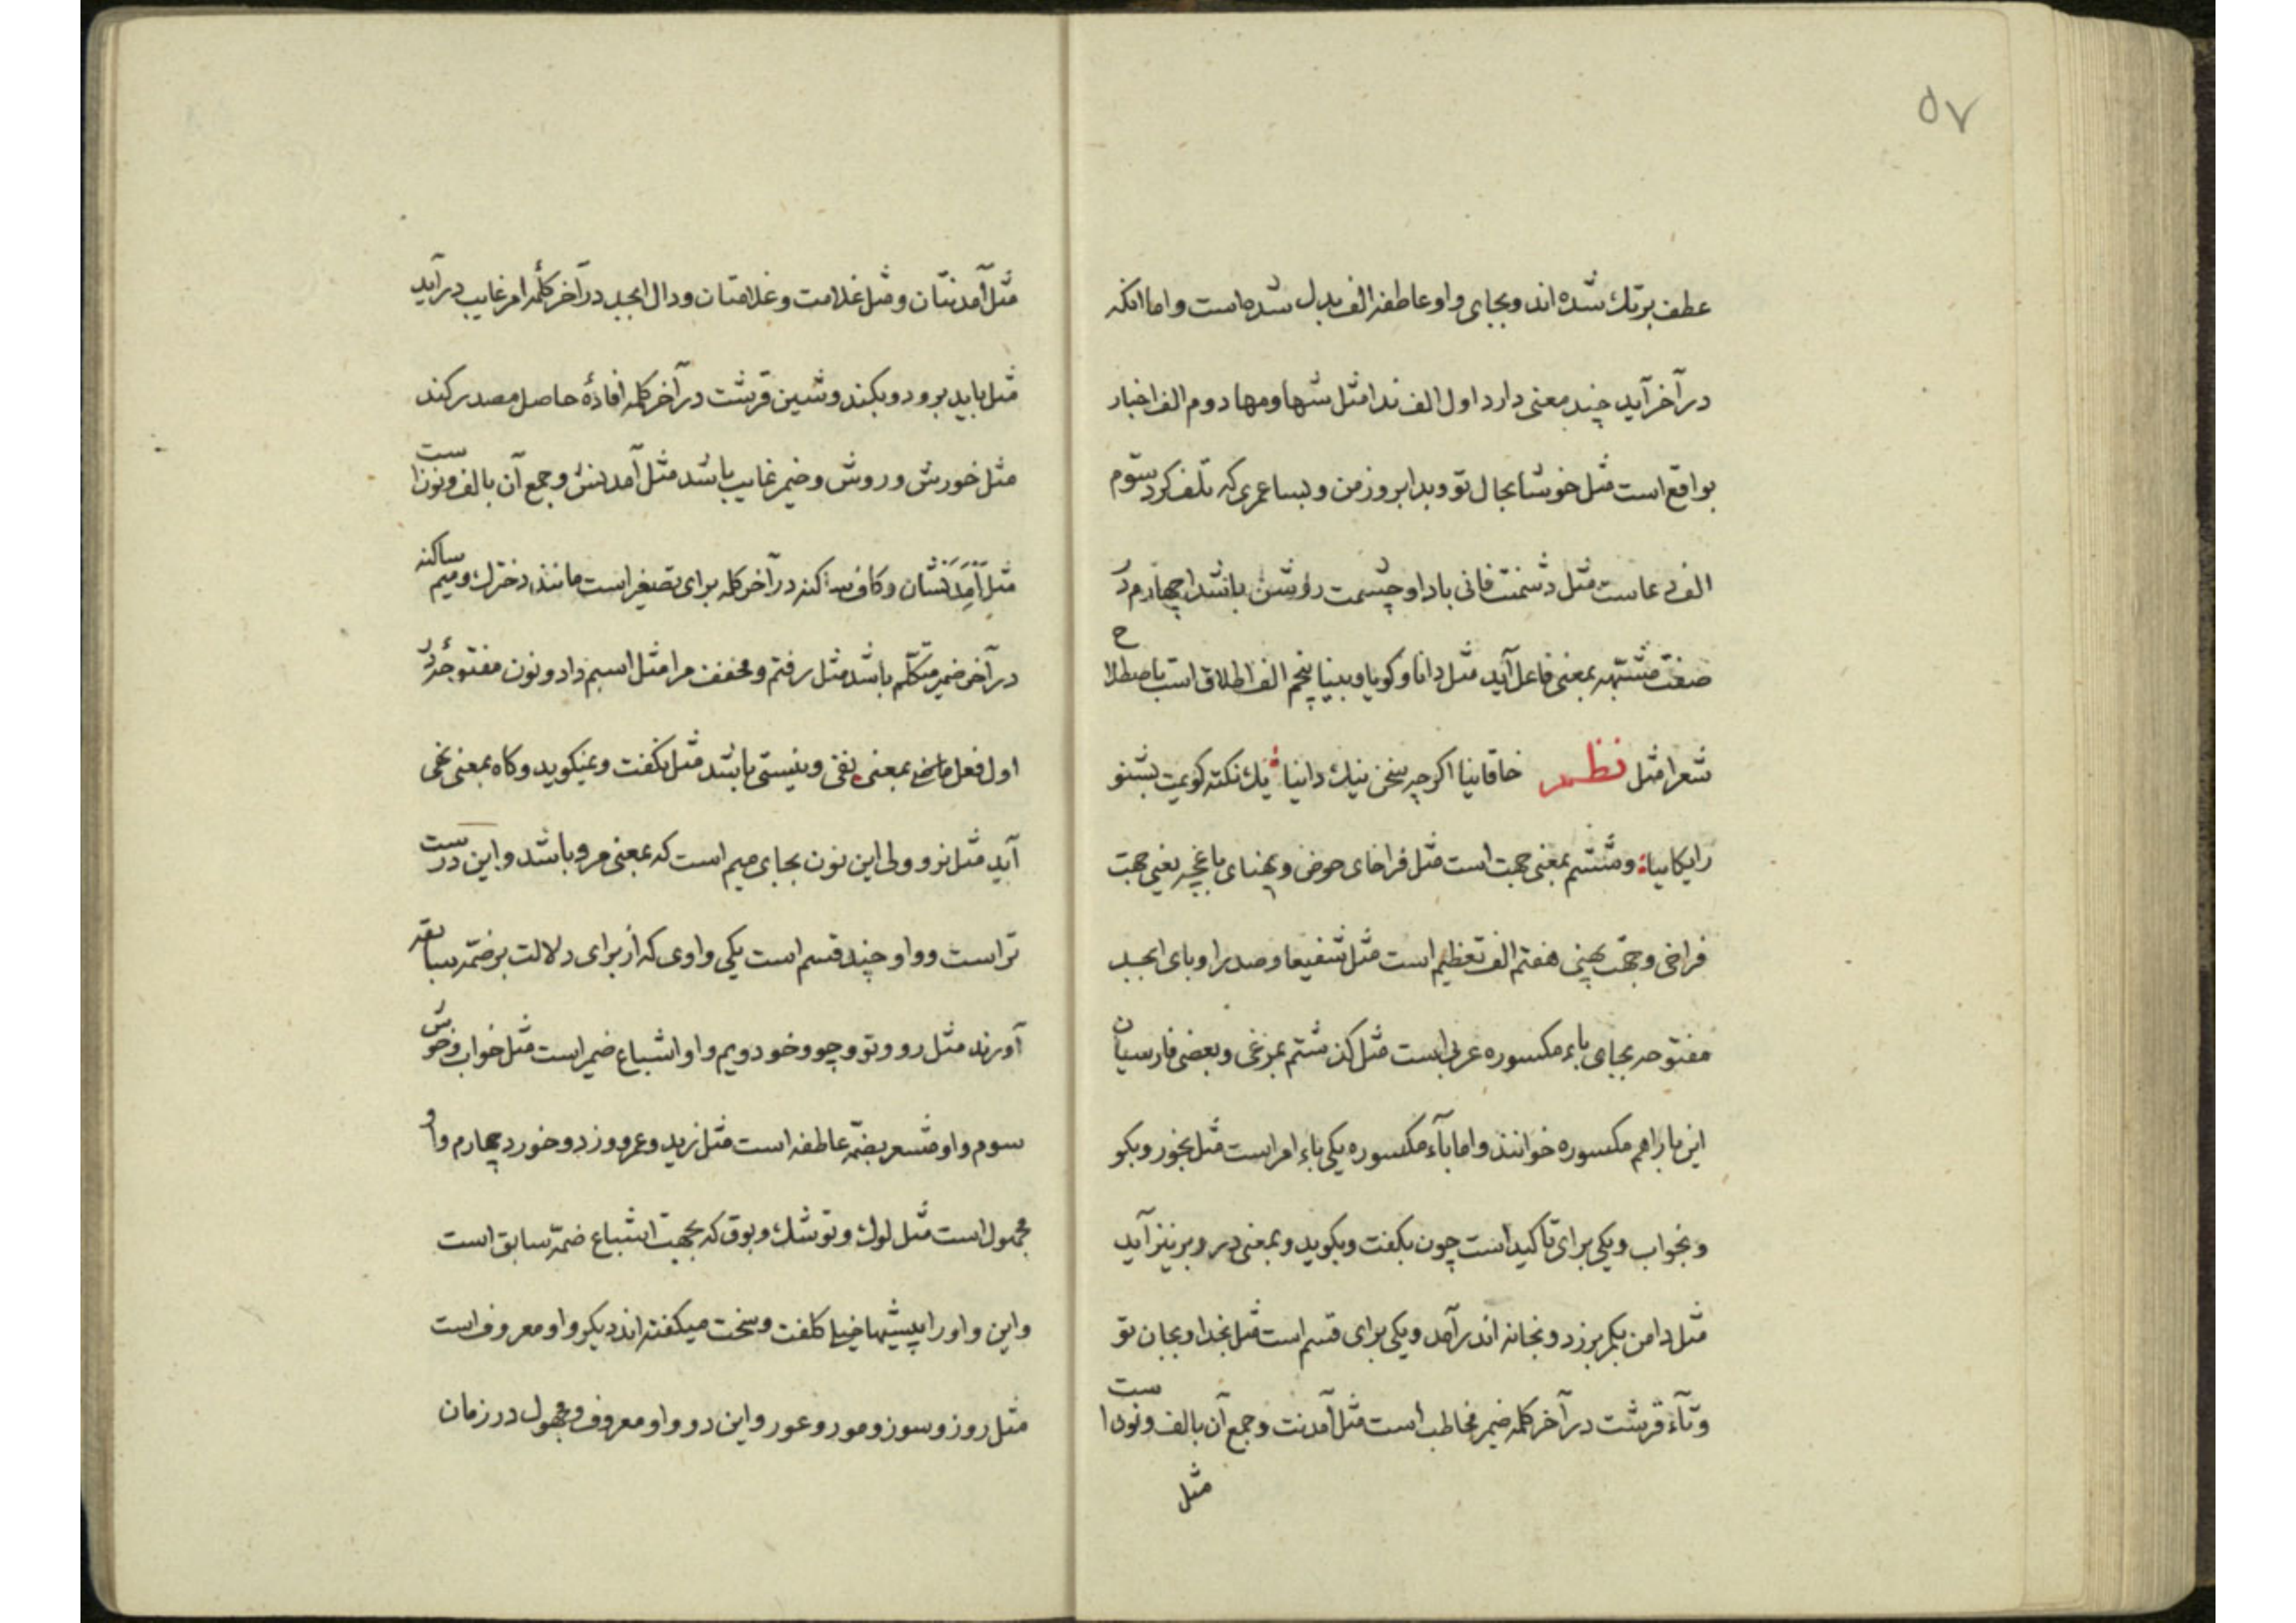 ۵۷
عطف برتك شده اند و بجای واو عاطفه الف بدل شده است و اما انکه
در آخر آید چند معنی دارد اول الف ندا مثل شها و مها دوم الف اخبار
بواقع است مثل خوشا بحال تو و بدا بروز من و بسا عمری که تلف کرد سّوم
الف دعاست مثل دشمنت فانی بادا و چشمت روشن باشدا چهارم در
صفت مشتبهه بمعنی فاعل آید مثل دانا و کویا و بینا پنجم الف اطلاق است باصطلاح
شعرا مثل نظم خاقانیا اکر چه سخن نیك دانیا یك نکته کویمت بشنو
رایکانیا و ششم بمعنی جهت است مثل فراخای حوض و پهنای باغچه یعنی جهت
فراخی و جهت پهنی هفتم الف تعظیم است مثل شفیعا و صدرا و بای ابجد
مفتوحه بجای باء مکسوره عربی است مثل کذشتم بمرغی و بعضی فارسیان
این با را هم مکسوره خوانند و اما بآء مکسوره یکی باء امر است مثل بخور و بکو
و بخواب و یکی برای تاکید است چون بکفت و بکوید و بمعنی در و بر نیز آید
مثل دامن بکمر بر زد و بخانه اندر آمد و یکی برای قسم است مثل بخدا و بجان تو
و تآء قرشت در آخر کلمه ضمیر مخاطب است مثل آمدنت و جمع آن بالف و نون است
مثل
مثل آمدنتان و مثل غلامت و غلامتان و دال ابجد در آخر کلمهٔ امر غایب در آید
مثل باید برود و بکند و شین قرشت در آخر کلمه افادهٔ حاصل مصدر کند
مثل خورش و روش و ضمیر غایب باشد مثل آمدنش و جمع آن بالف و نون است
مثل آمَدَنَشان و کاف ساکنه در آخر کلمه برای تصغیر است مانند دخترك و میم ساکنه
در آخر ضمیر متکلّم باشد مثل رفتم و مخفف مرا مثل اسبم داد و نون مفتوحهٔ در
اول فعل ماضی بمعنی نفی و نیستی باشد مثل نکفت و نمیکوید و کاه بمعنی نهی
آید مثل نرو ولی این نون بجای میم است که بمعنی مرو باشد و این درست
تر است و واو چند قسم است یکی واوی که از برای دلالت بر ضمّه سابقه
آورند مثل رو و تو و چو و خود دویم واو اشباع ضمیر است مثل خواب و خوش
سوم واو مشعر بضمّه عاطفه است مثل زید و عمرو و زد و خورد چهارم واو
مجهول است مثل لوك و توشك و بوق که بجهت اشباع ضمّه سابق است
و این واو را پیشیها خیلی کلفت و سخت میکفته اند دیکر واو معروف است
مثل روز و سوز و مور و عور و این دو واو معروف و مجهول در زمان